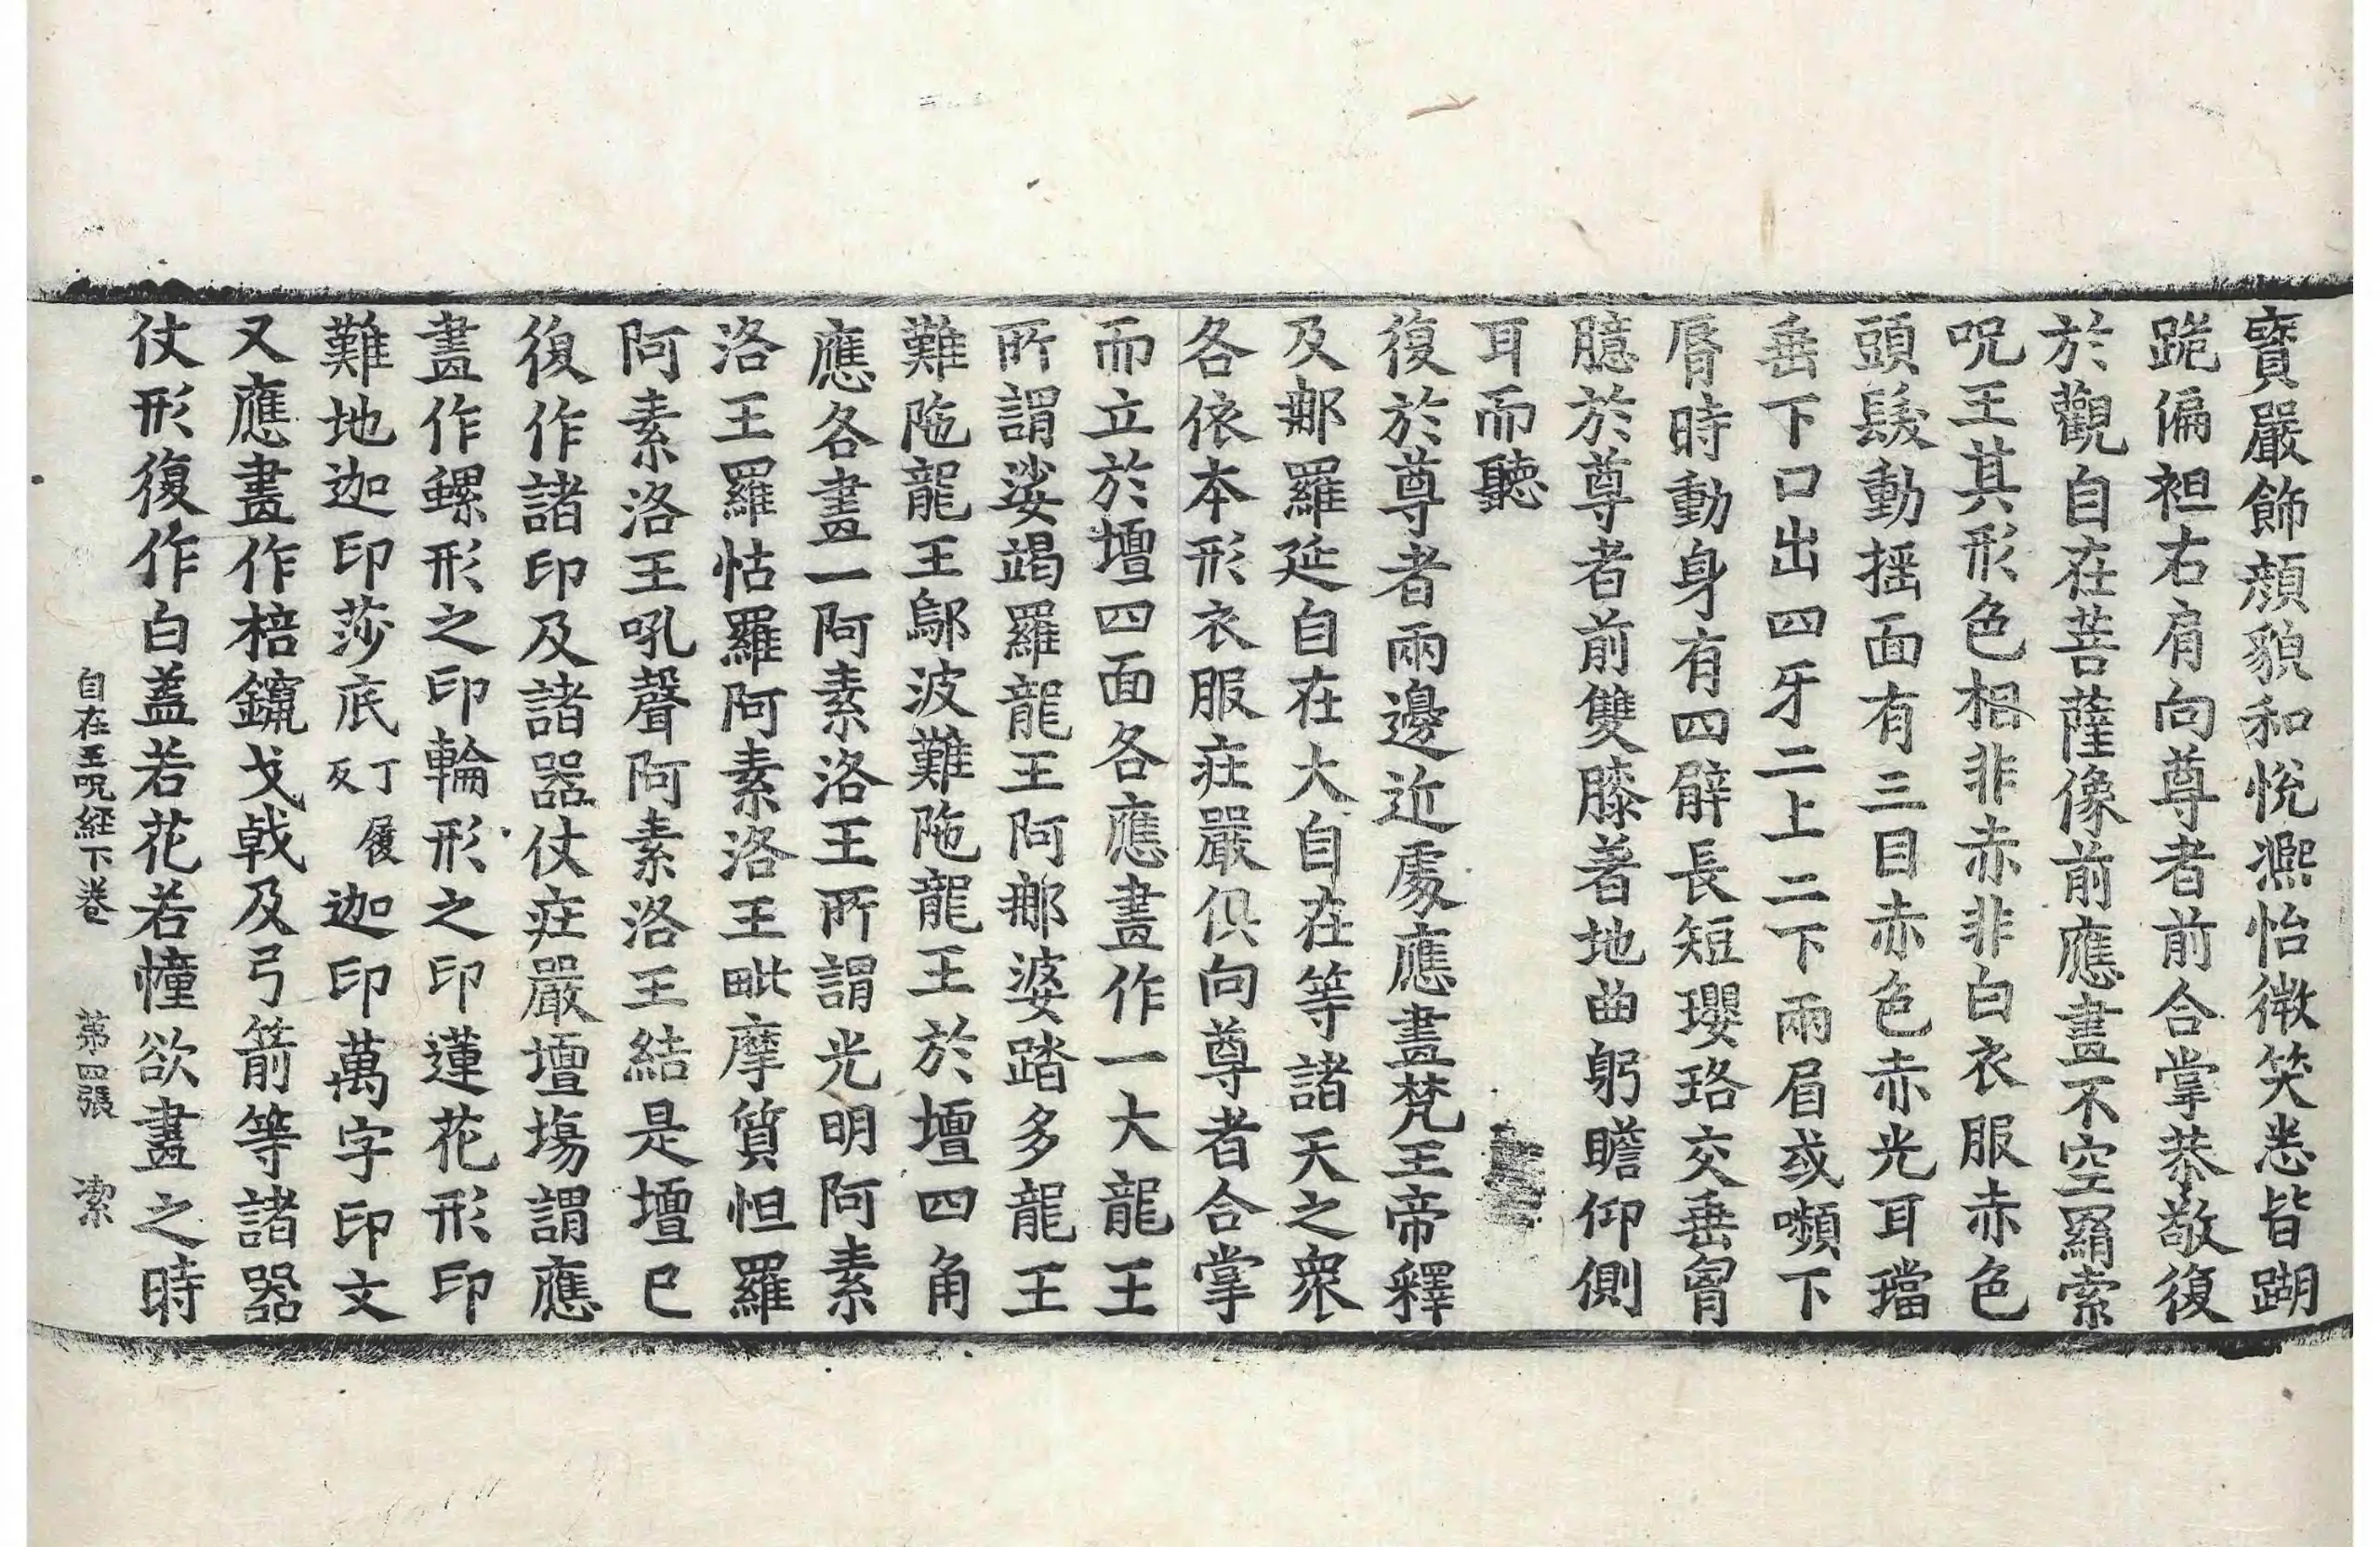 寳嚴飾顔貌和悅熈怡微笑悉皆𨄔
跪偏袒右肩向尊者前合掌恭敬復
於觀自在菩薩像前應畫不空羂索
呪王其形色相非赤非白衣服赤色
頭髮動揺面有三目赤色赤光耳璫
垂下口出四牙二上二下兩眉或嚬下
脣時動身有四臂長短瓔珞交垂胷
臆於尊者前雙膝著地曲躬瞻仰側
耳而聽
復於尊者兩邊近處應畫梵王帝釋
及那羅延自在大自在等諸天之衆
各依本形衣服莊嚴俱向尊者合掌
而立於壇四面各應畫作一大龍王
所謂娑竭羅龍王阿那婆踏多龍王
難陁龍王鄔波難陁龍王於壇四角
應各畫一阿素洛王所謂光明阿素
洛王羅怙羅阿素洛王毗摩質怛羅
阿素洛王吼聲阿素洛王結是壇已
復作諸印及諸器仗莊嚴壇場謂應
畫作螺形之印輪形之印蓮花形印
難地迦印莎底丁履反迦印萬字印文
又應畫作棓鑹戈戟及弓箭等諸器
仗形復作白蓋若花若幢欲畫之時
自在王呪経下卷 第四張 潔